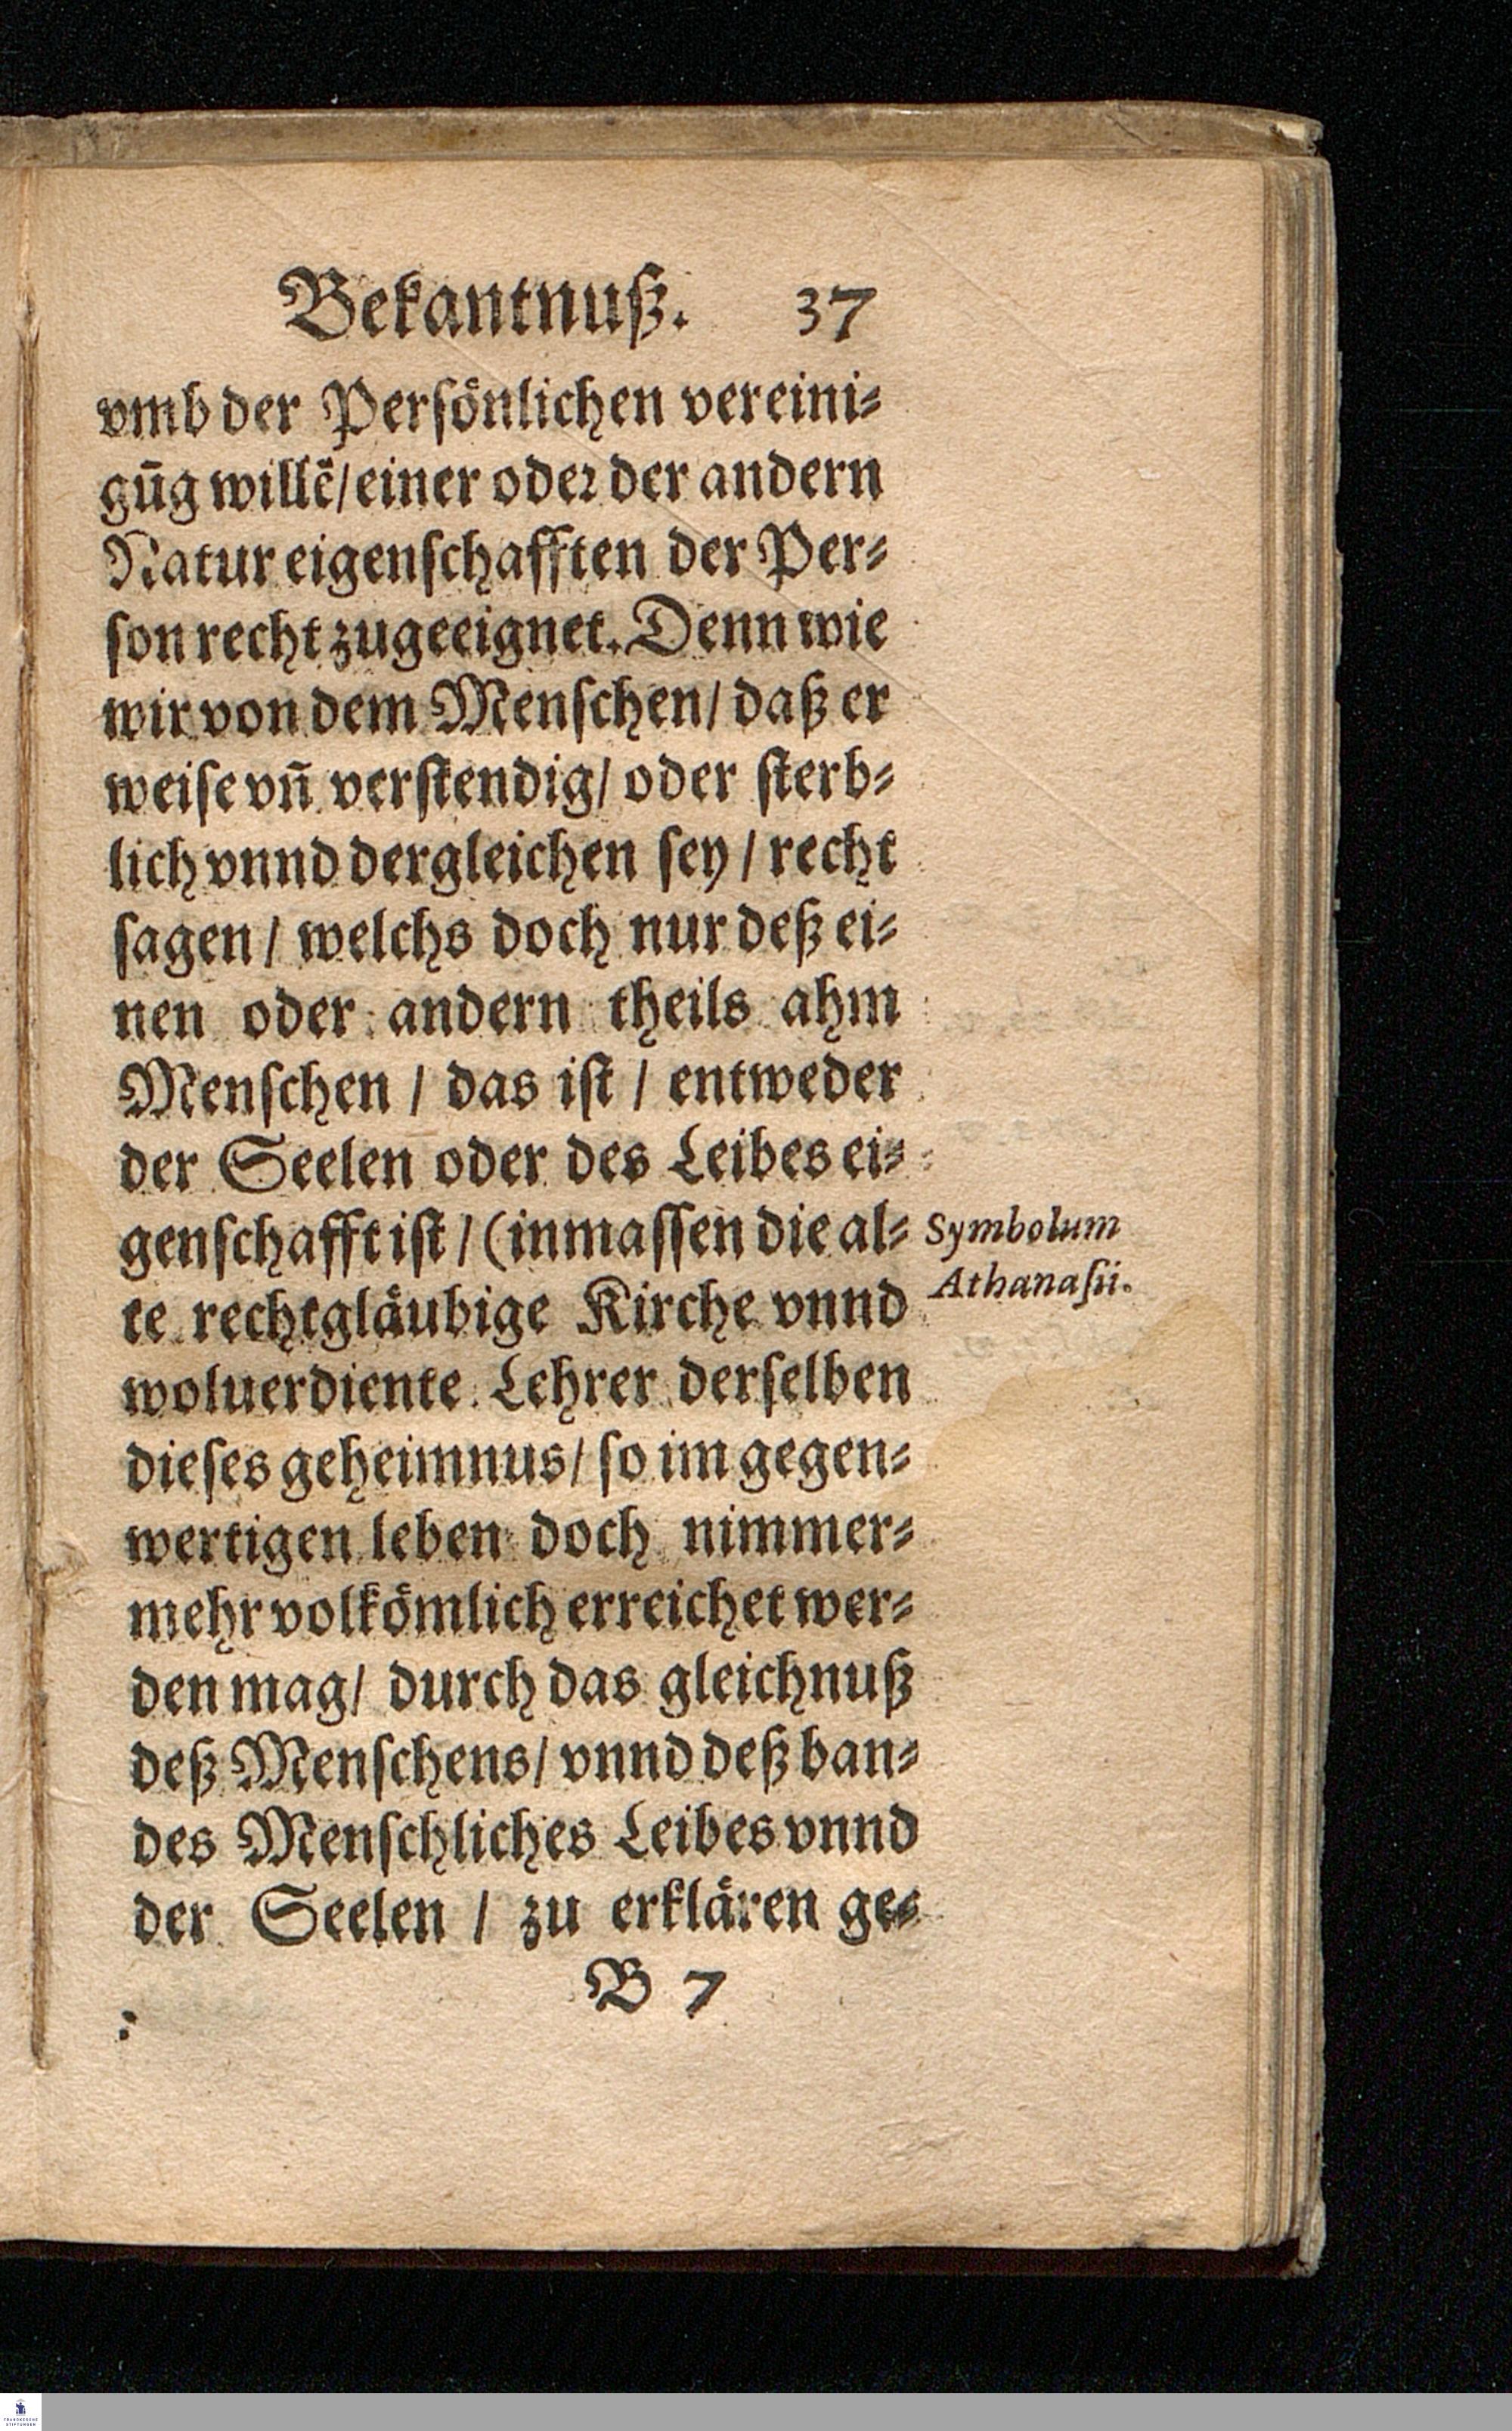 Bekantnuß. 37
vmb der Perſönlichen vereini⸗
gūg willē/ einer odeꝛ der andern
Natur eigenſchafften der Per⸗
ſon recht zugeeignet. Denn wie
wir von dem Menſchen/ daß er
weiſe vn̄ verſtendig/ oder ſterb⸗
lich vnnd dergleichen ſey / recht
ſagen / welchs doch nur deß ei⸗
nen oder andern theils ahm
Menſchen / das iſt / entweder
der Seelen oder des Leibes ei⸗
genſchafft iſt / (inmaſſen die al⸗
Symbolum
Athanaſii.
te rechtgläubige Kirche vnnd
woluerdiente Lehrer derſelben
dieſes geheimnus/ ſo im gegen⸗
wertigen leben doch nimmer⸗
mehr volkömlich erreichet wer⸗
den mag/ durch das gleichnuß
deß Menſchens/ vnnd deß ban⸗
des Menſchliches Leibes vnnd
der Seelen / zu erklären ge⸗
B 7